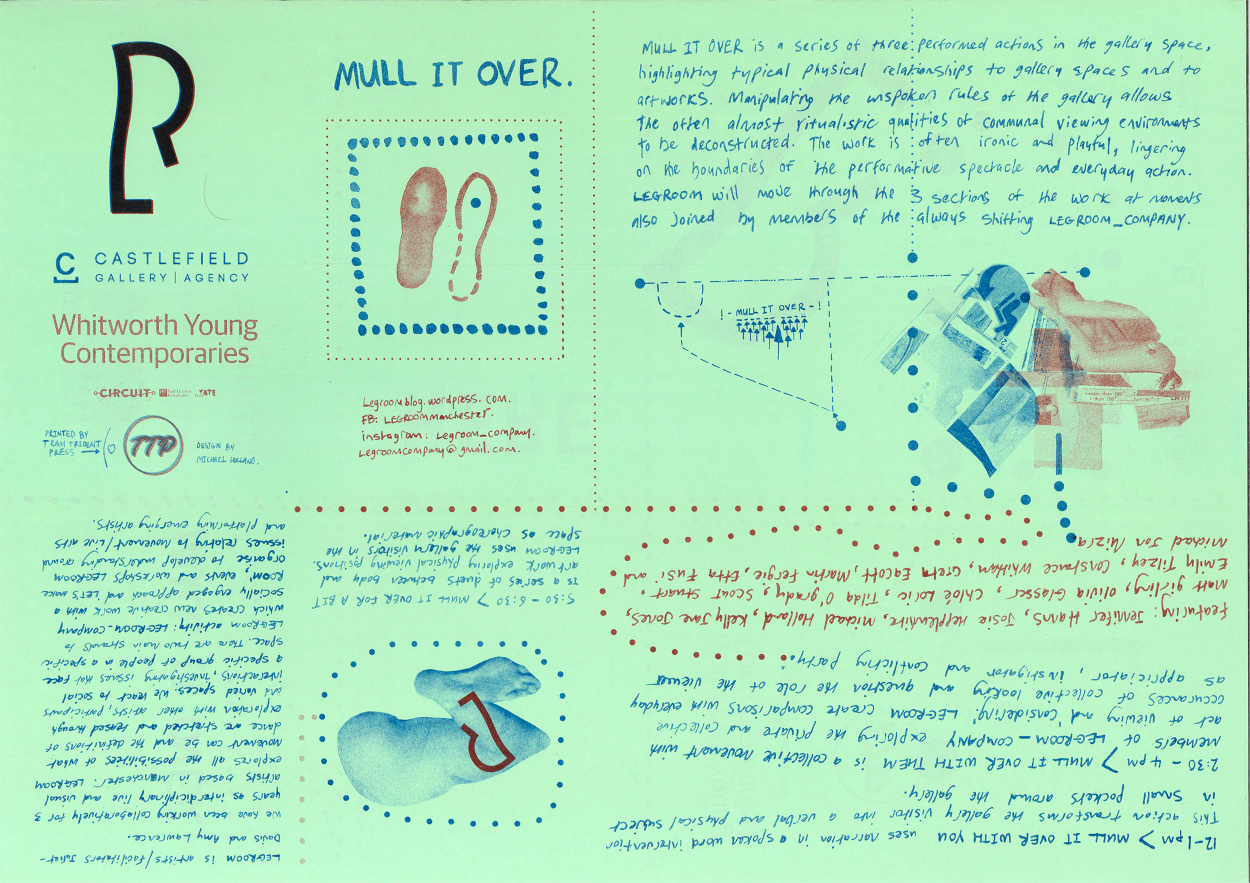 MULL IT OVER.
CASTLEFIELD
GALLERY | AGENCY
Whitworth Young
Contemporaries
CIRCUIT
TATE
PRINTED BY
TEAM TRIDENT
PRESS
TTP
DESIGN BY
MICHAEL HOLLAND.
Legroomblog.wordpress.com.
FB: LEGROOMmanchester.
instagram: Legroom_company.
Legroomcompany@gmail.com.
MULL IT OVER is a series of three performed actions in the gallery space,
highlighting typical physical relationships to gallery spaces and to
artworks. Manipulating the unspoken rules of the gallery allows
the often almost ritualistic qualities of communal viewing environments
to be deconstructed. The work is often ironic and playful, lingering
on the boundaries of the performative spectacle and everyday action.
LEGROOM will move through the 3 sections of the work at moments
also joined by members of the always shifting LEGROOM_COMPANY.
!- MULL IT OVER -!
12-1pm > MULL IT OVER WITH YOU uses narration in a spoken word intervention
This action transforms the gallery visitor into a verbal and physical subject
in small pockets around the gallery.
2:30 - 4pm > MULL IT OVER WITH THEM is a collective movement with
members of LEGROOM_COMPANY exploring the private and collective
act of viewing and 'considering'. LEGROOM create comparisons with everyday
occurances of collective looking and question the role of the viewer
as appiciator, instigator and conflicting party.
Featuring: Jennifer Hanns, Josie Hepplewhite, Michael Holland, Kelly Jane Jones,
Matt gilling, Olivia Glasser, Chloé Loric, Tilda O'grady, Scout Stuart,
Emily Tilzey, Constance Whitham, Greta Eacott, Martin Fergie, Etta Fusi and
Michael Jon Mizra
5:30 - 6:30 > MULL IT OVER FOR A BIT
is a series of duets between body and
art work, exploring physical viewing positions.
LEGROOM uses the gallery visitors in the
space as choreographic material.
LEGROOM is artists/facilitators Juliet
Davis and Amy Lawrence.
We have been working collaboratively for 3
years as interdiciplinary live and visual
artists based in Manchester. LEGROOM
explores all the possibilities of what
movement can be and the definitions of
dance are stretched and teased through
exploration with other artists, participants
and varied spaces. We react to social
interactions, investigating issues that face
a specific group of people in a specific
space. There are two main strands to
LEGROOM activity; LEGROOM_COMPANY
which creates new creative work with a
socially engaged approach and 'LET'S MAKE
ROOM', events and workshops LEGROOM
organise to develop understanding around
issues relating to movement/Live arts
and platforming emerging artists.